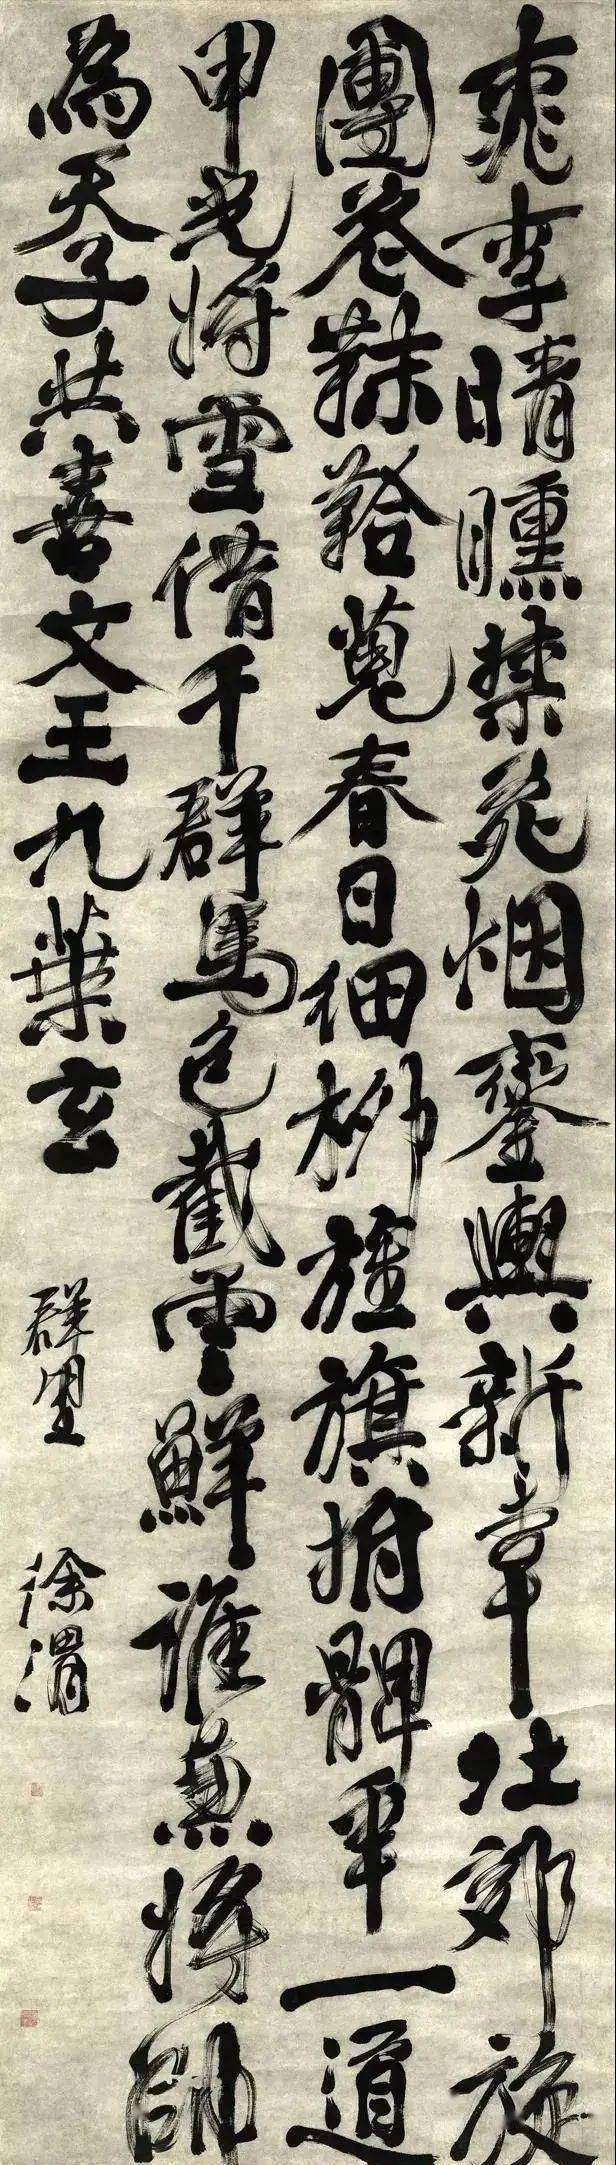 桃李晴曛禁苑烟鑾輿新幸北郊旋
團花靺鞈蒐春日細柳旌旗拊髀年一道
甲光將雪借千群馬色截雲鮮誰兼將帥
為天子共喜文王九葉玄
群望
徐渭